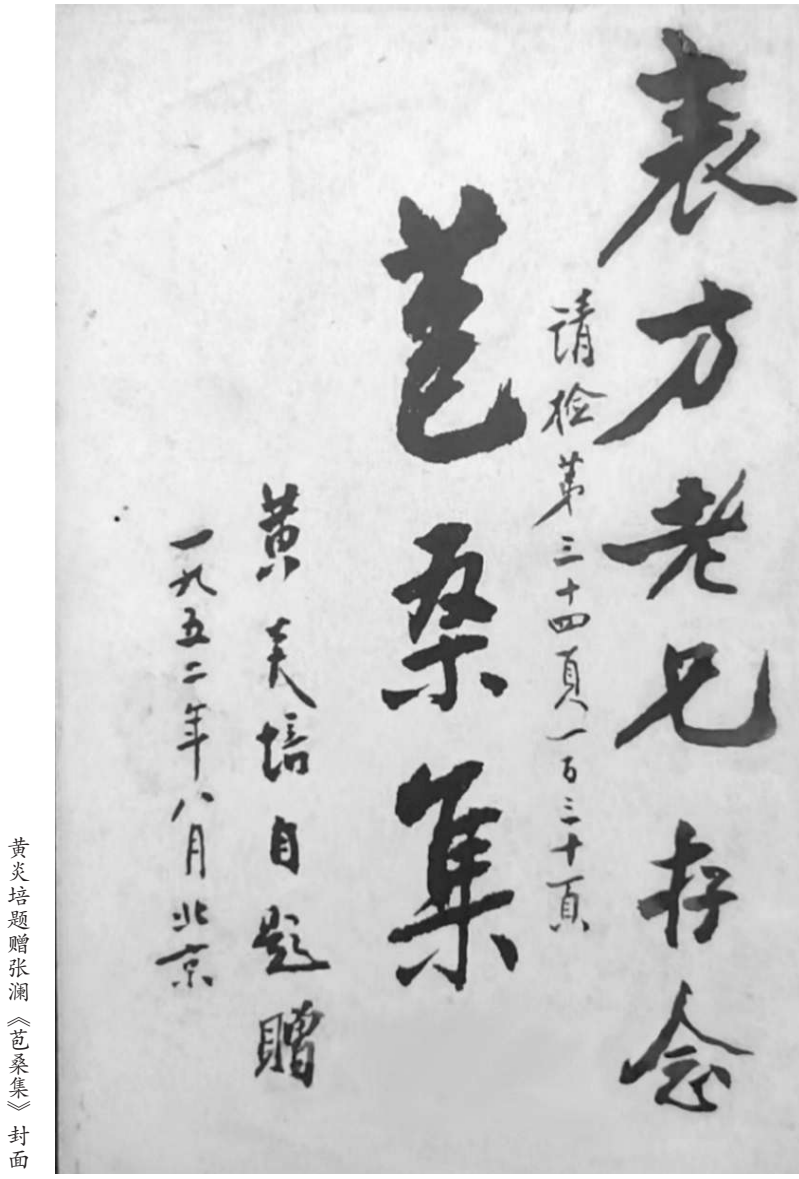 表方老兄存念
请检第三十四頁一百三十頁
苞桑集
黄炎培自题贈
一九五二年八月北京
黄炎培题赠张澜《苞桑集》封面